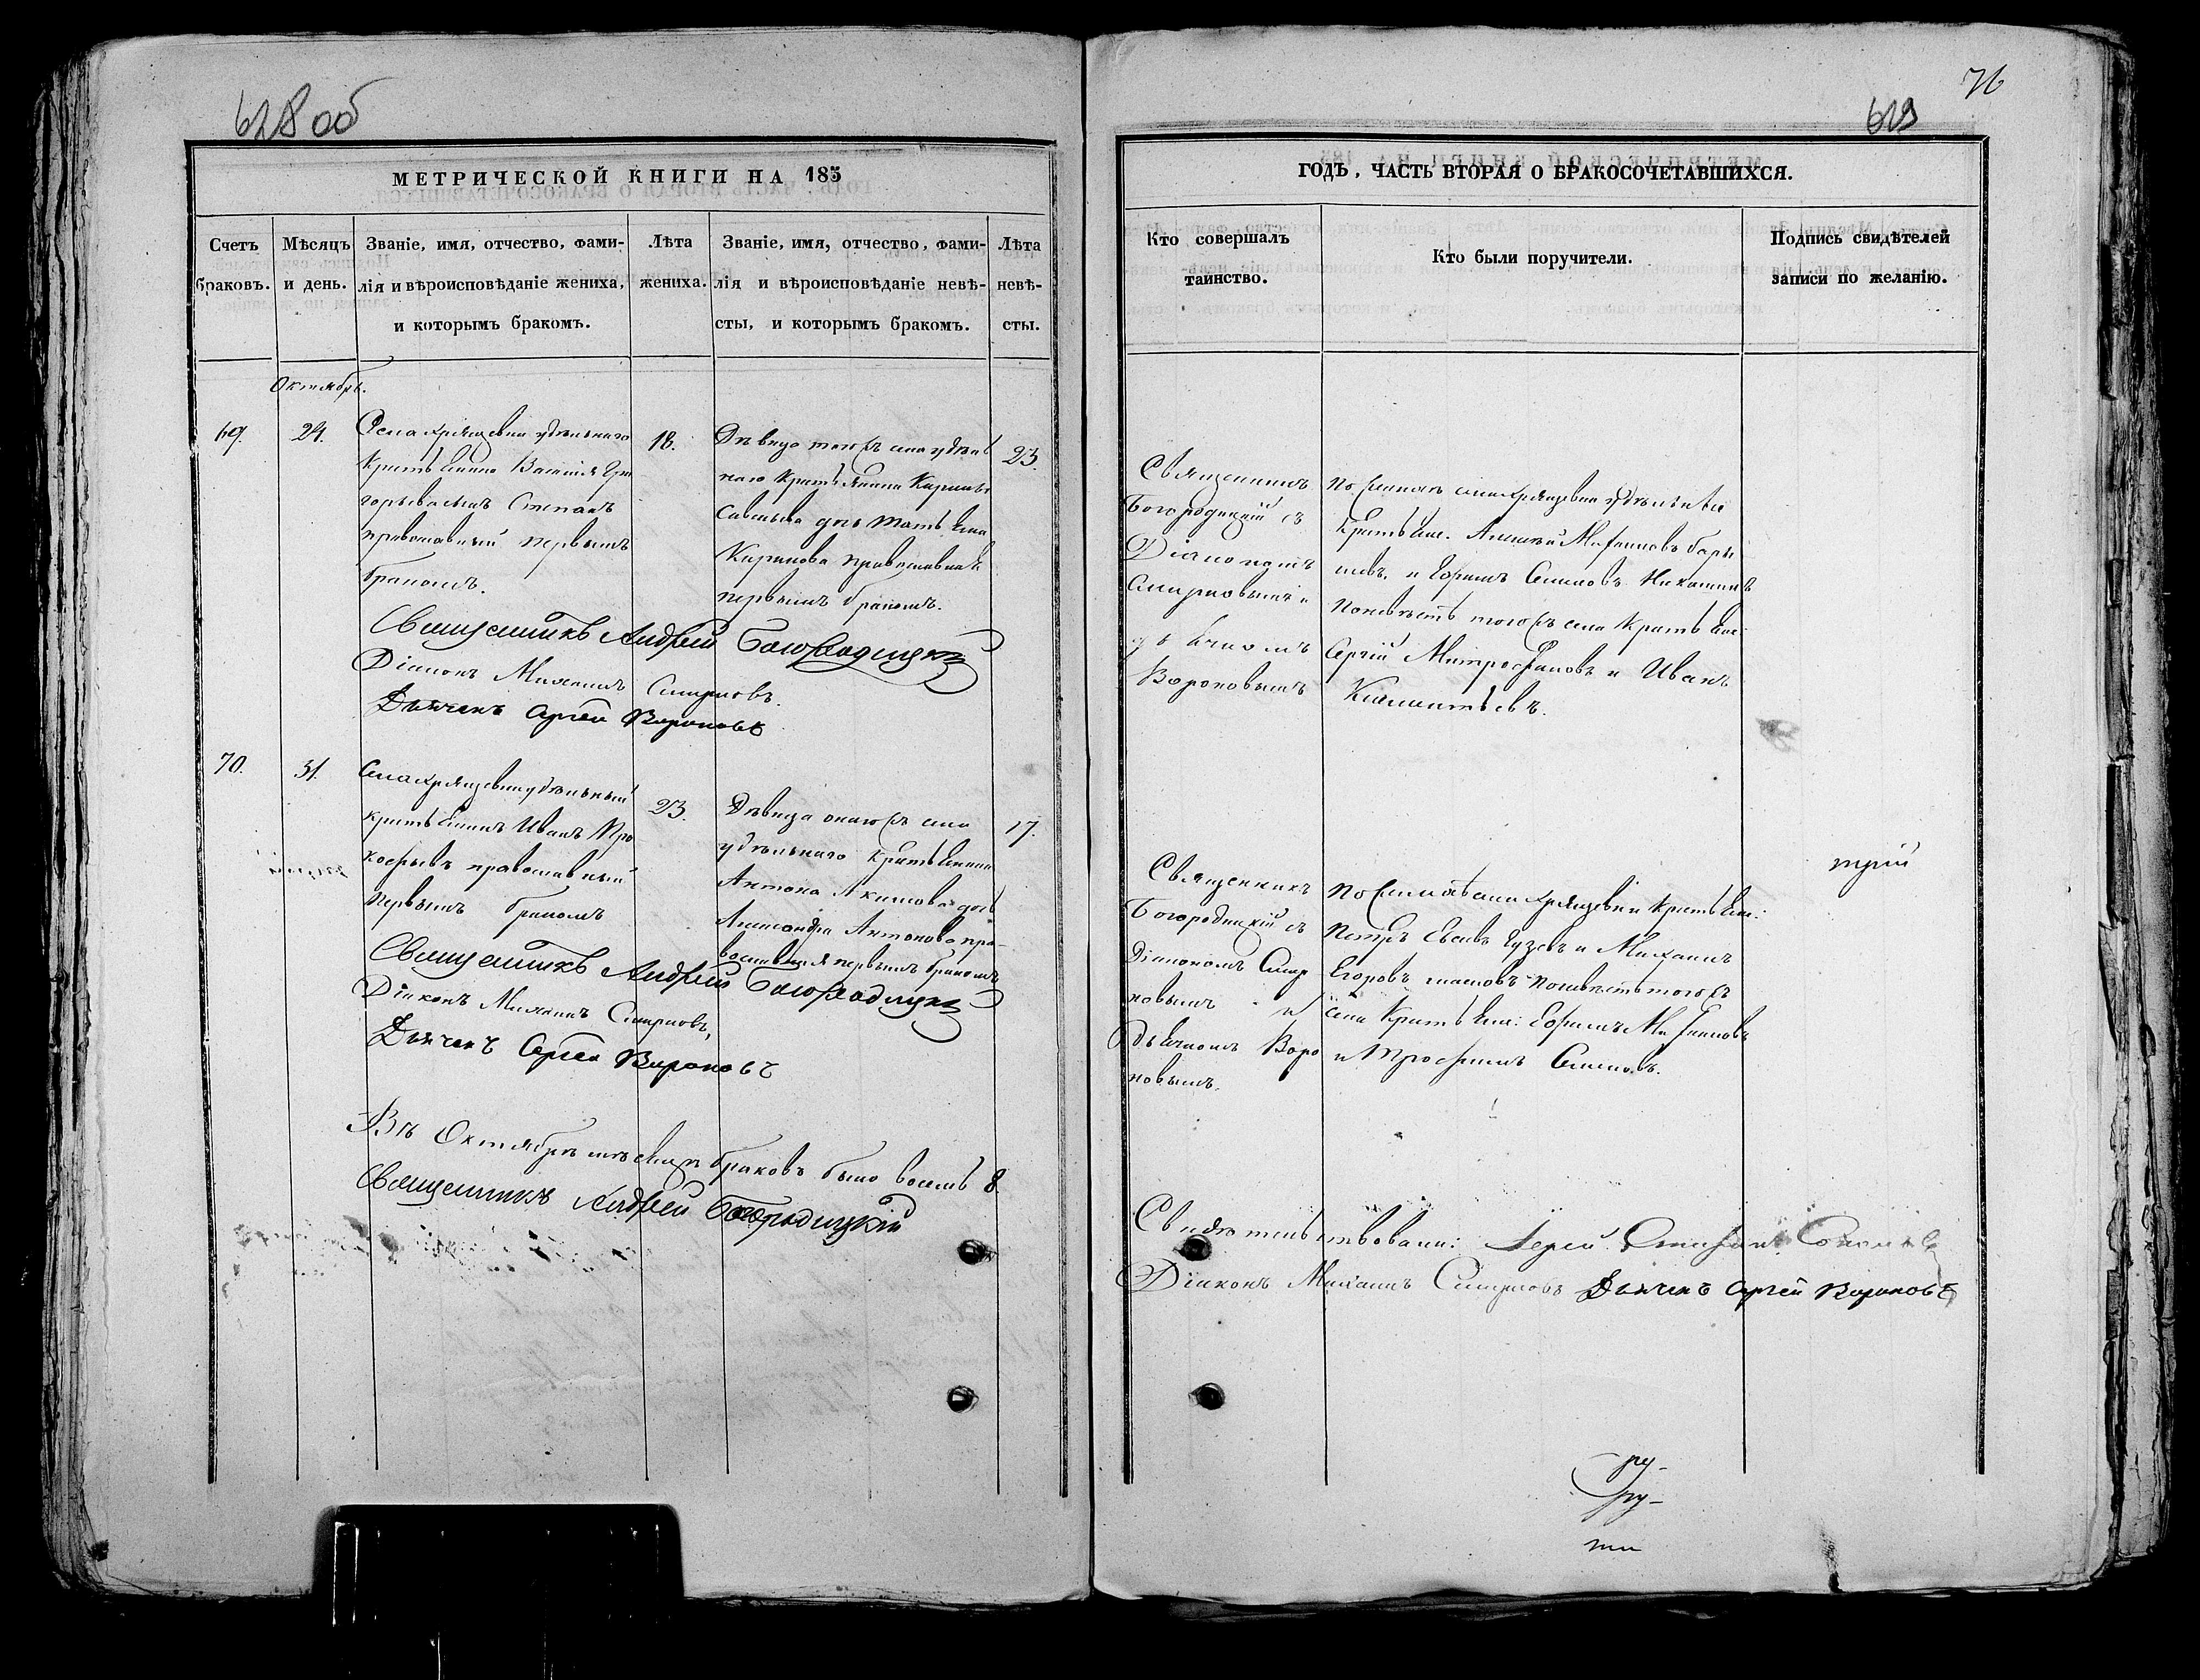 628 об
МЕТРИЧЕСКОЙ КНИГИ НА 185
Счетъ браковъ.
Мѣсяцъ и день.
Званіе, имя, отчество, фами-
лія и вѣроисповѣданіе жениха,
и которымъ бракомъ.
Лѣта жениха.
Званіе, имя, отчество, фами-
лія и вѣроисповѣданіе невѣ-
сты, и которымъ бракомъ.
Лѣта невѣ-
сты.
Октябрь.
69.
24.
Села Хрящевки удѣльнаго
крестьянина Василья Гри
горьева сынъ Степанъ
православный первымъ
бракомъ.
18.
Дѣвица того жъ села удѣль
наго крестьянина Кирилы
Савельева дочь Татьяна
Кирилова православная
первымъ бракомъ.
23.
Священникъ Андрей Богородицкій
Діаконъ Михаилъ Смирновъ.
Дьячекъ Сергей Вороновъ
70.
31.
Села Хрящевки удѣльный
крестьянинъ Иванъ Про
кофьевъ православный
первымъ бракомъ
23.
Дѣвица онаго жъ села
удѣльнаго крестьянина
Антона Акимова дочь
Александра Антонова пра-
вославная первымъ бракомъ
17.
Священникъ Андрей Богородицкій
Діаконъ Михаилъ Смирновъ,
Дьячекъ Сергей Вороновъ
Въ Октябрѣ мѣсяцѣ браковъ было восемь 8.
Священникъ Андрей Богородицкій
76
629
ГОДЪ, ЧАСТЬ ВТОРАЯ О БРАКОСОЧЕТАВШИХСЯ.
Кто совершалъ
таинство.
Кто были поручители.
Подпись свидѣтелей
записи по желанію.
Священникъ
Богородицкій съ
Діакономъ
Смирновымъ и
дьячкомъ
Вороновымъ
По женихѣ села Хрящевки удѣльные
крестьяне. Алексѣй
и Ефимъ Семеновъ
по невѣстѣ того жъ села крестьяне
Сергій Митрофановъ и Иванъ
Климентьевъ.
Священникъ
Богородицкій съ
Діакономъ Смир
новымъ и
дьячкомъ Воро
новымъ.
По женихѣ села Хрящевки крестьяне:
Петръ Гузевъ и Михаилъ
Егоровъ по невѣстѣ того жъ
села крестьяне: Ефимъ
и Трофимъ Семеновъ.
Свидѣтельствовали: Іерей
Діаконъ Михаилъ Смирновъ Дьячекъ Сергей Вороновъ